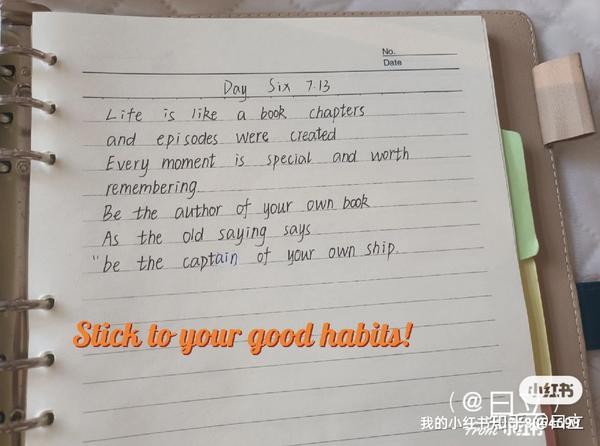 No.
Date
Day Six 7.13
Life is like a book chapters
and episodes were created
Every moment is special and worth
remembering
Be the author of your own book
As the old saying says
"be the captain of your own ship.
Stick to your good habits!
小红书